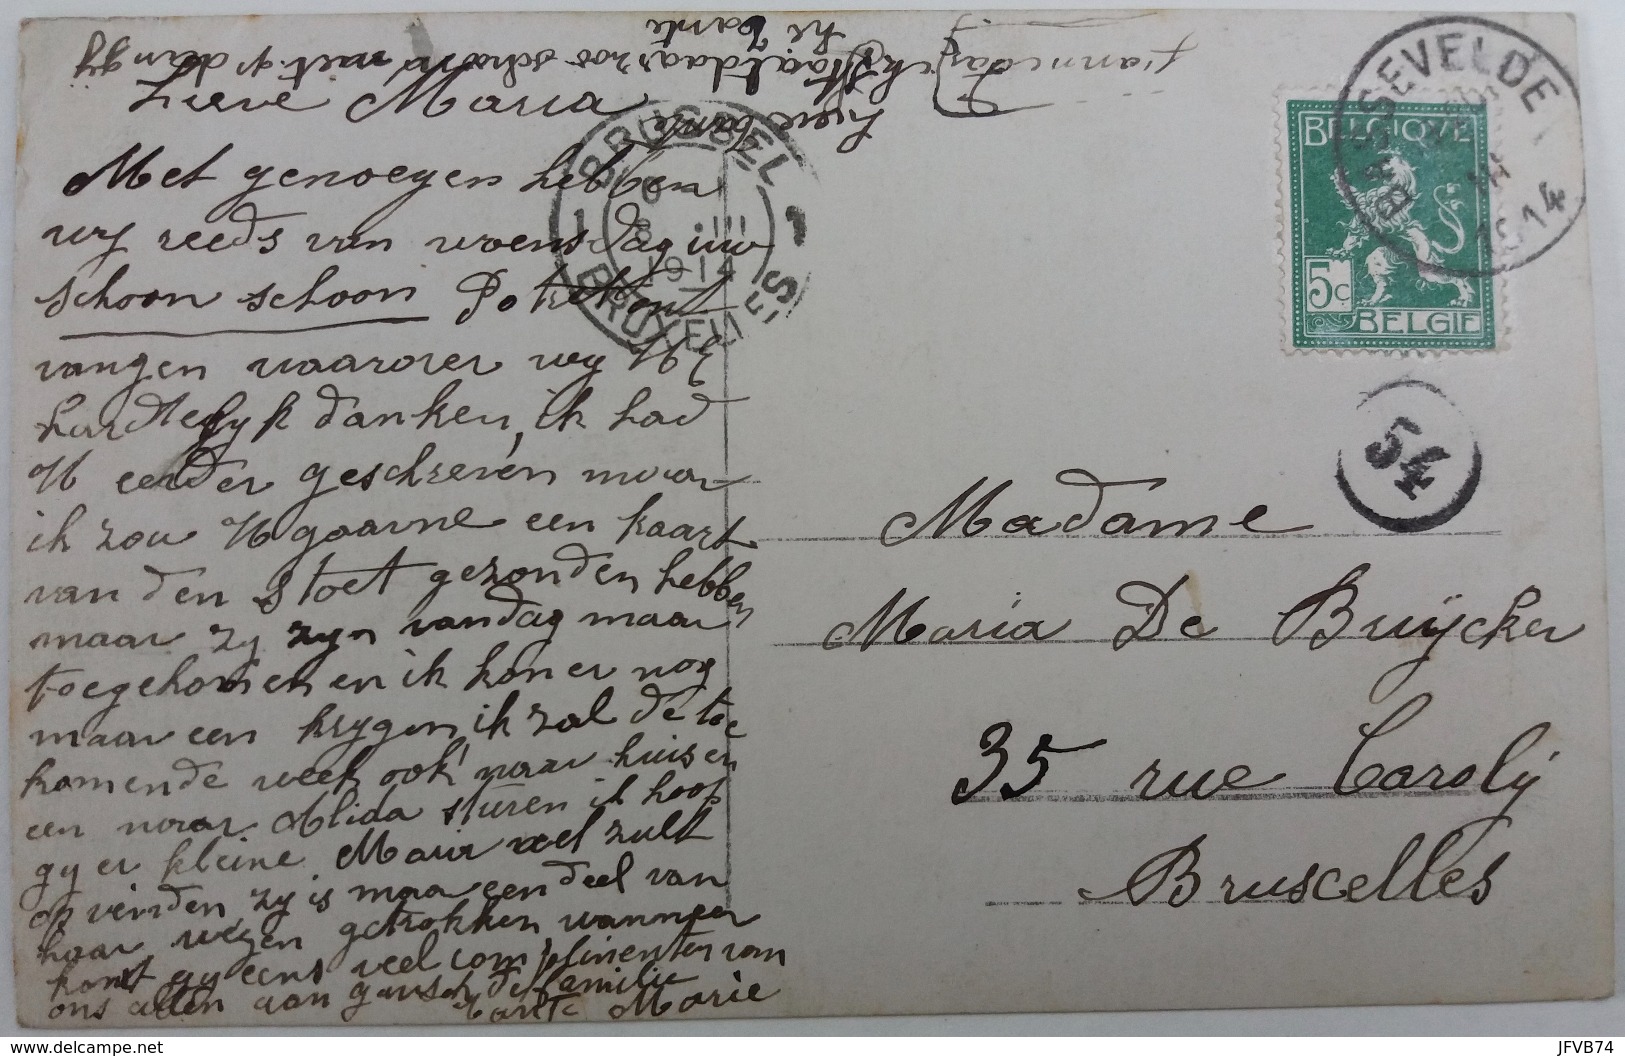 Lieve Maria
Met genoegen hebben
wy reeds van woensdag uw
schoon schoon Potret ont
vangen waarover wy U
hardtelyk danken, ik had
U eerder geschreven maar
ik zou U gaarne een kaart
van den stoet gezonden hebben
maar zy zyn vandag maar
toegekomen en ik kon er nog
maar een krygen ik zal de toe
komende week ook naar huis en
een naar Alida sturen ik hoop
gy er kleine Maria wel zult
op vinden, zy is maar een deel van
haar wezen getrokken wanneer
komt gy eens veel complimenten van
ons allen aan gansch de familie
Marie
Lieve tante
BRUSSEL
8 III
1914
BRUXELLES
BASSEVELDE
1914
BELGIQUE
5c
BELGIË
54
Madame
Maria De Buÿcker
35 rue Caroly
Bruscelles
JFVB74